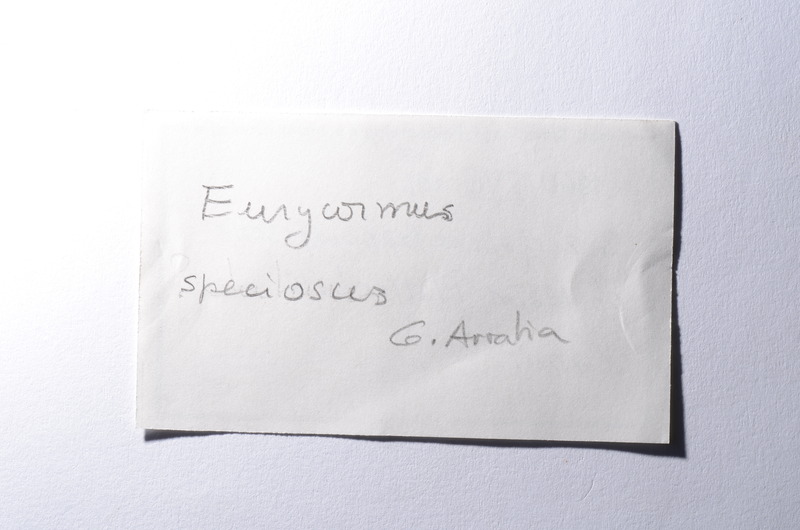 Eurycormus
speciosus
G. Arratia